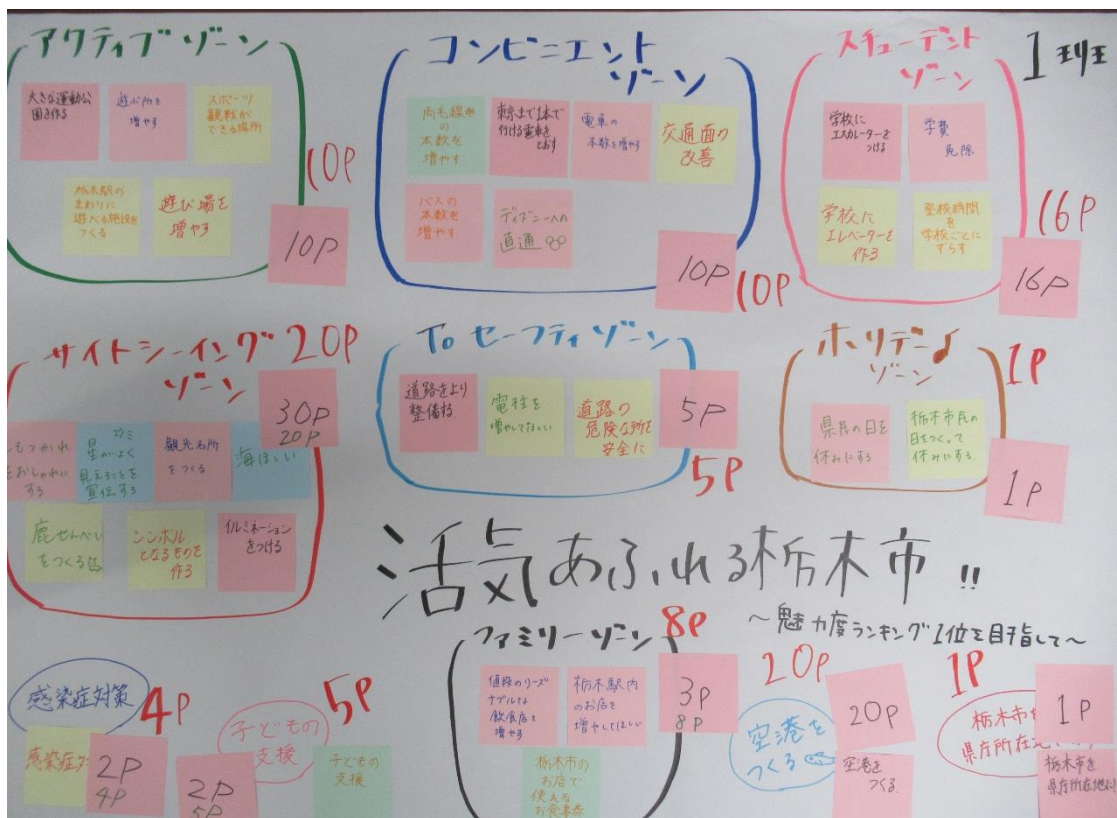 アクティブゾーン
大きな運動公
園を作る
遊ぶ所を
増やす
スポーツ
観戦が
できる場所
10P
栃木駅の
まわりに
遊べる施設を
つくる
遊び場を
増やす
10P
コンビニエント
ゾーン
両毛線
の
本数を
増やす
東京まで1本で
行ける電車を
とおす
電車の
本数を増やす
交通面の
改善
バスの
本数を
増やす
ディズニーへの
直通
10P
10P
スチューデント
ゾーン
1班
学校に
エスカレーターを
つける
学費
免除
16P
学校に
エレベーターを
作る
登校時間
を
学校ごとに
ずらす
16P
サイトシーイング 20P
ゾーン
30P
20P
もつかれ
をおしゃれに
する
星がよく
見えることを
宣伝する
観光名所
をつくる
海ほしい
鹿せんべい
をつくる
シンボル
となるものを
作る
イルミネーション
をつける
To セーフティゾーン
道路をより
整備する
電柱を
増やしてほしい
道路の
危険な所を
安全に
5P
5P
ホリデー♪
ゾーン
1P
県民の日を
休みにする
栃木市民の
日をつくって
休みにする
1P
活気あふれる栃木市!!
〜魅力度ランキング1位を目指して〜
ファミリーゾーン
8P
値段のリーズ
ナブルな
飲食店を
増やす
栃木駅内
のお店を
増やしてほしい
3P
8P
栃木市の
お店で
使える
お食事券
感染症対策
4P
感染症
2P
4P
子どもの
支援
5P
2P
5P
子どもの
支援
20P
空港を
つくる
20P
空港を
つくる
1P
栃木市
県庁所在
1P
栃木市を
県庁所在地に!